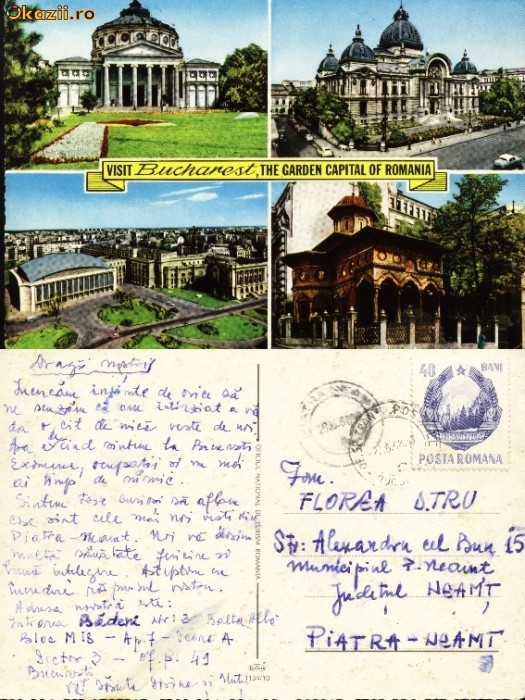 Okazii.ro
VISIT Bucharest, THE GARDEN CAPITAL OF ROMANIA
Dragă
Încercăm înainte de orice să
ne scuzăm că am întîrziat a vă
da o cît de mică veste de noi.
de cînd sîntem la București
Examene, ocupații și nu mai
ai timp de nimic.
Sîntem tare curioși să aflăm
care sînt cele mai noi vești din
Piatra-Neamț. Noi vă dorim
multă sănătate fericire și
bună înțelegere. Așteptăm cu
încredere răspunsul vostru.
Adresa noastră este:
Intrarea Bădeni Nr: 2 Balta Albă
Bloc M18 - Ap. 7 - Scara A
Sector 3 - of. p. 49
București
OFICIUL NAȚIONAL DE TURISM ROMANIA
1134/10
40 BANI
POSTA ROMANA
Fam.
FLOREA D.TRU
Str: Alexandru cel Bun 15
Municipiul P. Neamț
Județul NEAMȚ
PIATRA-NEAMȚ